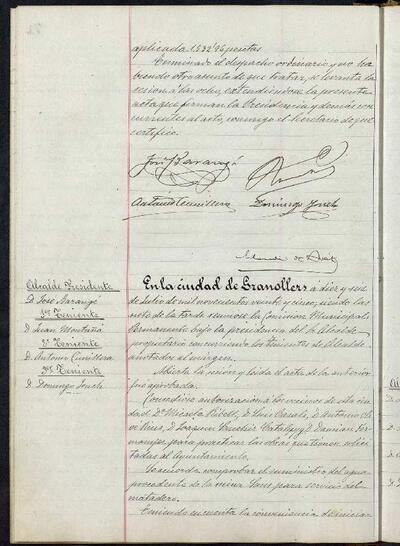 aplicada 1.532'96 pesetas
Terminado el despacho ordinario y no ha-
biendo otro asunto de que tratar, se levanta la
sesion a las ocho, extendiéndose la presente
acta que firman la Presidencia y demás con-
currentes al acto, conmigo el Secretario de que
certifico.
José Barangé
Antonio Cumillera Domingo Jonch
Alcalde Presidente
D. José Barangé
1er Teniente
D. Juan Montañá
2º Teniente
D. Antonio Cumillera
3er Teniente
D. Domingo Jonch
En la ciudad de Granollers á diez y
de Julio de mil novecientos veinte y cinco; siendo las
de la tarde reunióse la Comision Municipal
Permanente bajo la presidencia del Sr. Alcalde
propietario concurriendo los tenientes de Alcalde
anotados al margen.
Abierta la sesion y leida el acta de la anterior
fue aprobada.
Concedióse autorizacion á los vecinos de esta ciu-
dad Dª Micaela D. Luis D. Antonio
D. Joaquin y D. Damian
para practicar las obras que tienen solici-
tadas al Ayuntamiento.
Se acuerda comprobar el suministro del agua
procedente de la mina para servicio del
matadero.
Teniendo en cuenta la conveniencia de